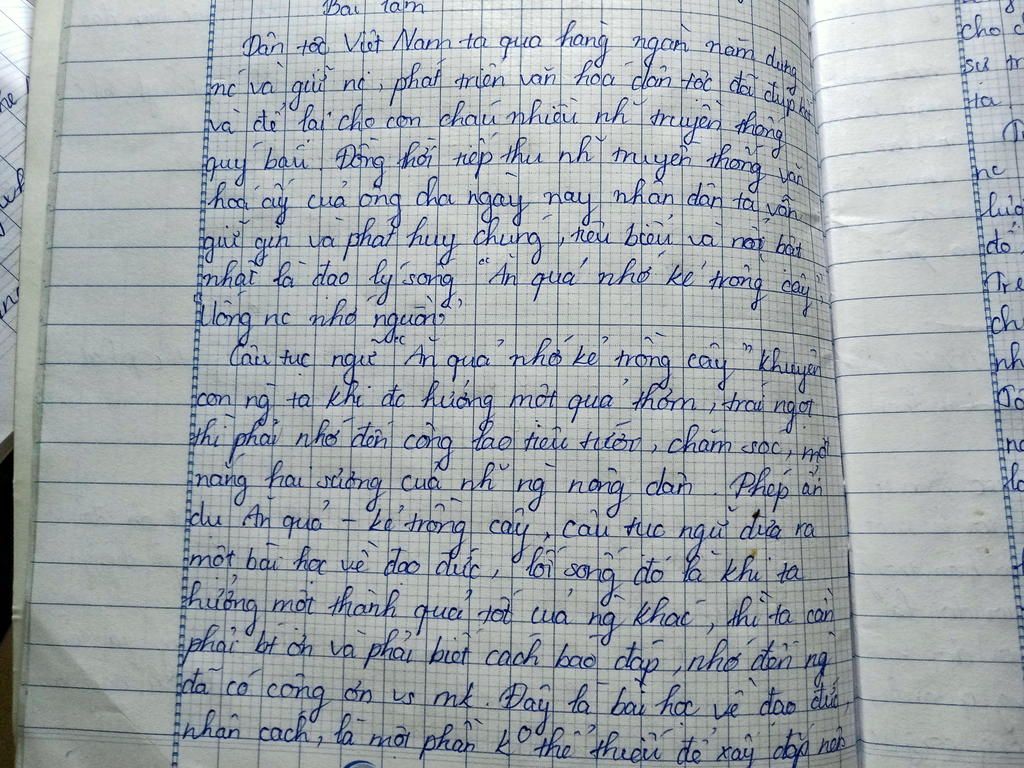 Bài làm
Dân tộc Việt Nam ta qua hàng ngàn năm dựng
nc và giữ nc, phát triển văn hóa dân tộc đời
và để lại cho con cháu nhiều nh~ truyền thống
quý báu. Đồng thời tiếp thu nh~ truyền thống văn
hoá ấy của ông cha ngày nay nhân dân ta vẫn
giữ gìn và phát huy chúng, tiêu biểu và nổi bật
nhất là đạo lý sống "Ăn quả nhớ kẻ trồng cây",
"Uống nc nhớ nguồn".
Câu tục ngữ "Ăn quả nhớ kẻ trồng cây" khuyên
con ng ta khi đc hưởng một quả thơm, trái ngọt
thì phải nhớ đến công lao tưới, chăm sóc, một
nắng hai sương của nh~ ng nông dân. Phép ẩn
dụ Ăn quả - kẻ trồng cây, câu tục ngữ đưa ra
một bài học về đạo đức, lối sống đó là khi ta
hưởng một thành quả tốt của ng khác, thì ta cần
phải bt ơn và phải biết cách báo đáp, nhớ đến ng
đã có công ơn vs mk. Đây là bài học về đạo đức,
nhân cách, là một phần k° thể thiếu để xây đắp nên
cho c
ta
nc
đó
Tre
nh